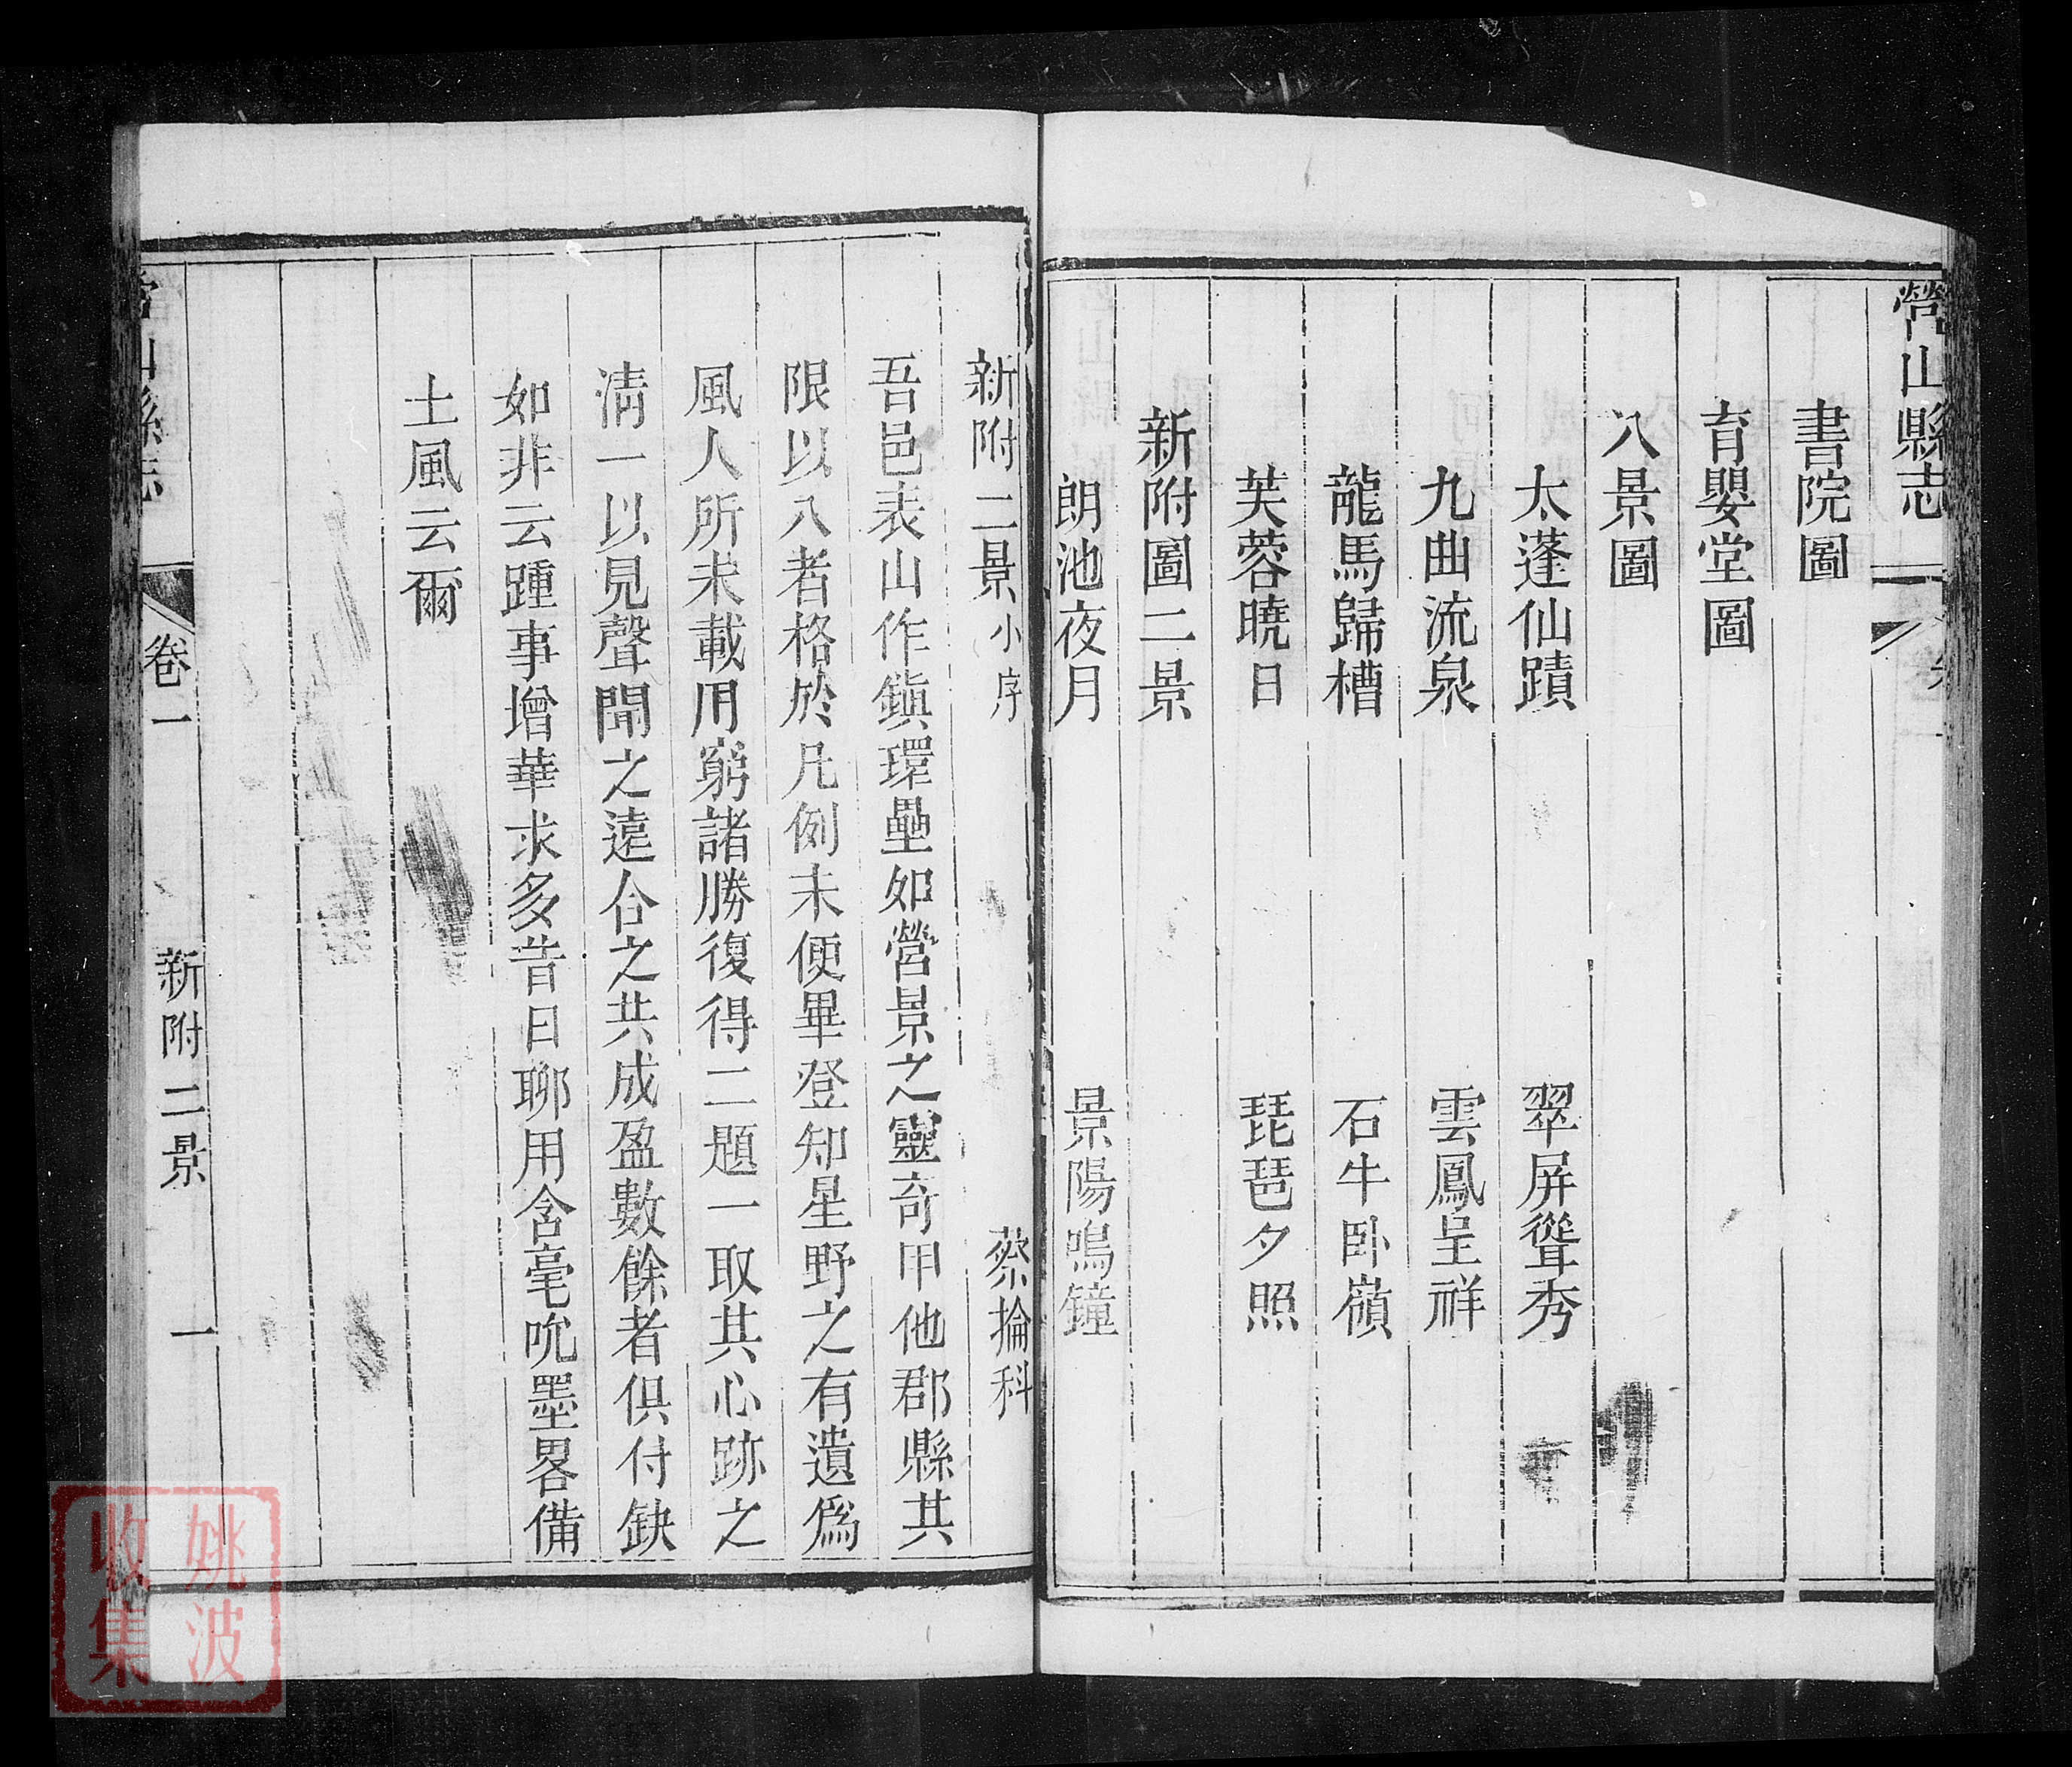 營山縣志
書院圖
育嬰堂圖
八景圖
太蓬仙蹟　翠屏聳秀
九曲流泉　雲鳳呈祥
龍馬歸槽　石牛卧嶺
芙蓉曉日　琵琶夕照
新附圖二景
朗池夜月　景陽鳴鐘
新附二景小序　蔡掄科
吾邑表山作鎮環壘如營景之靈奇甲他郡縣共
限以八者格於凡例未便畢登知星野之有遺爲
風人所未載用窮諸勝復得二題一取其心跡之
淸一以見聲聞之遠合之共成盈數餘者俱付缺
如非云踵事增華求多昔日聊用含毫吮墨畧備
土風云爾
營山縣志　卷一　新附二景　一
姚波
收集